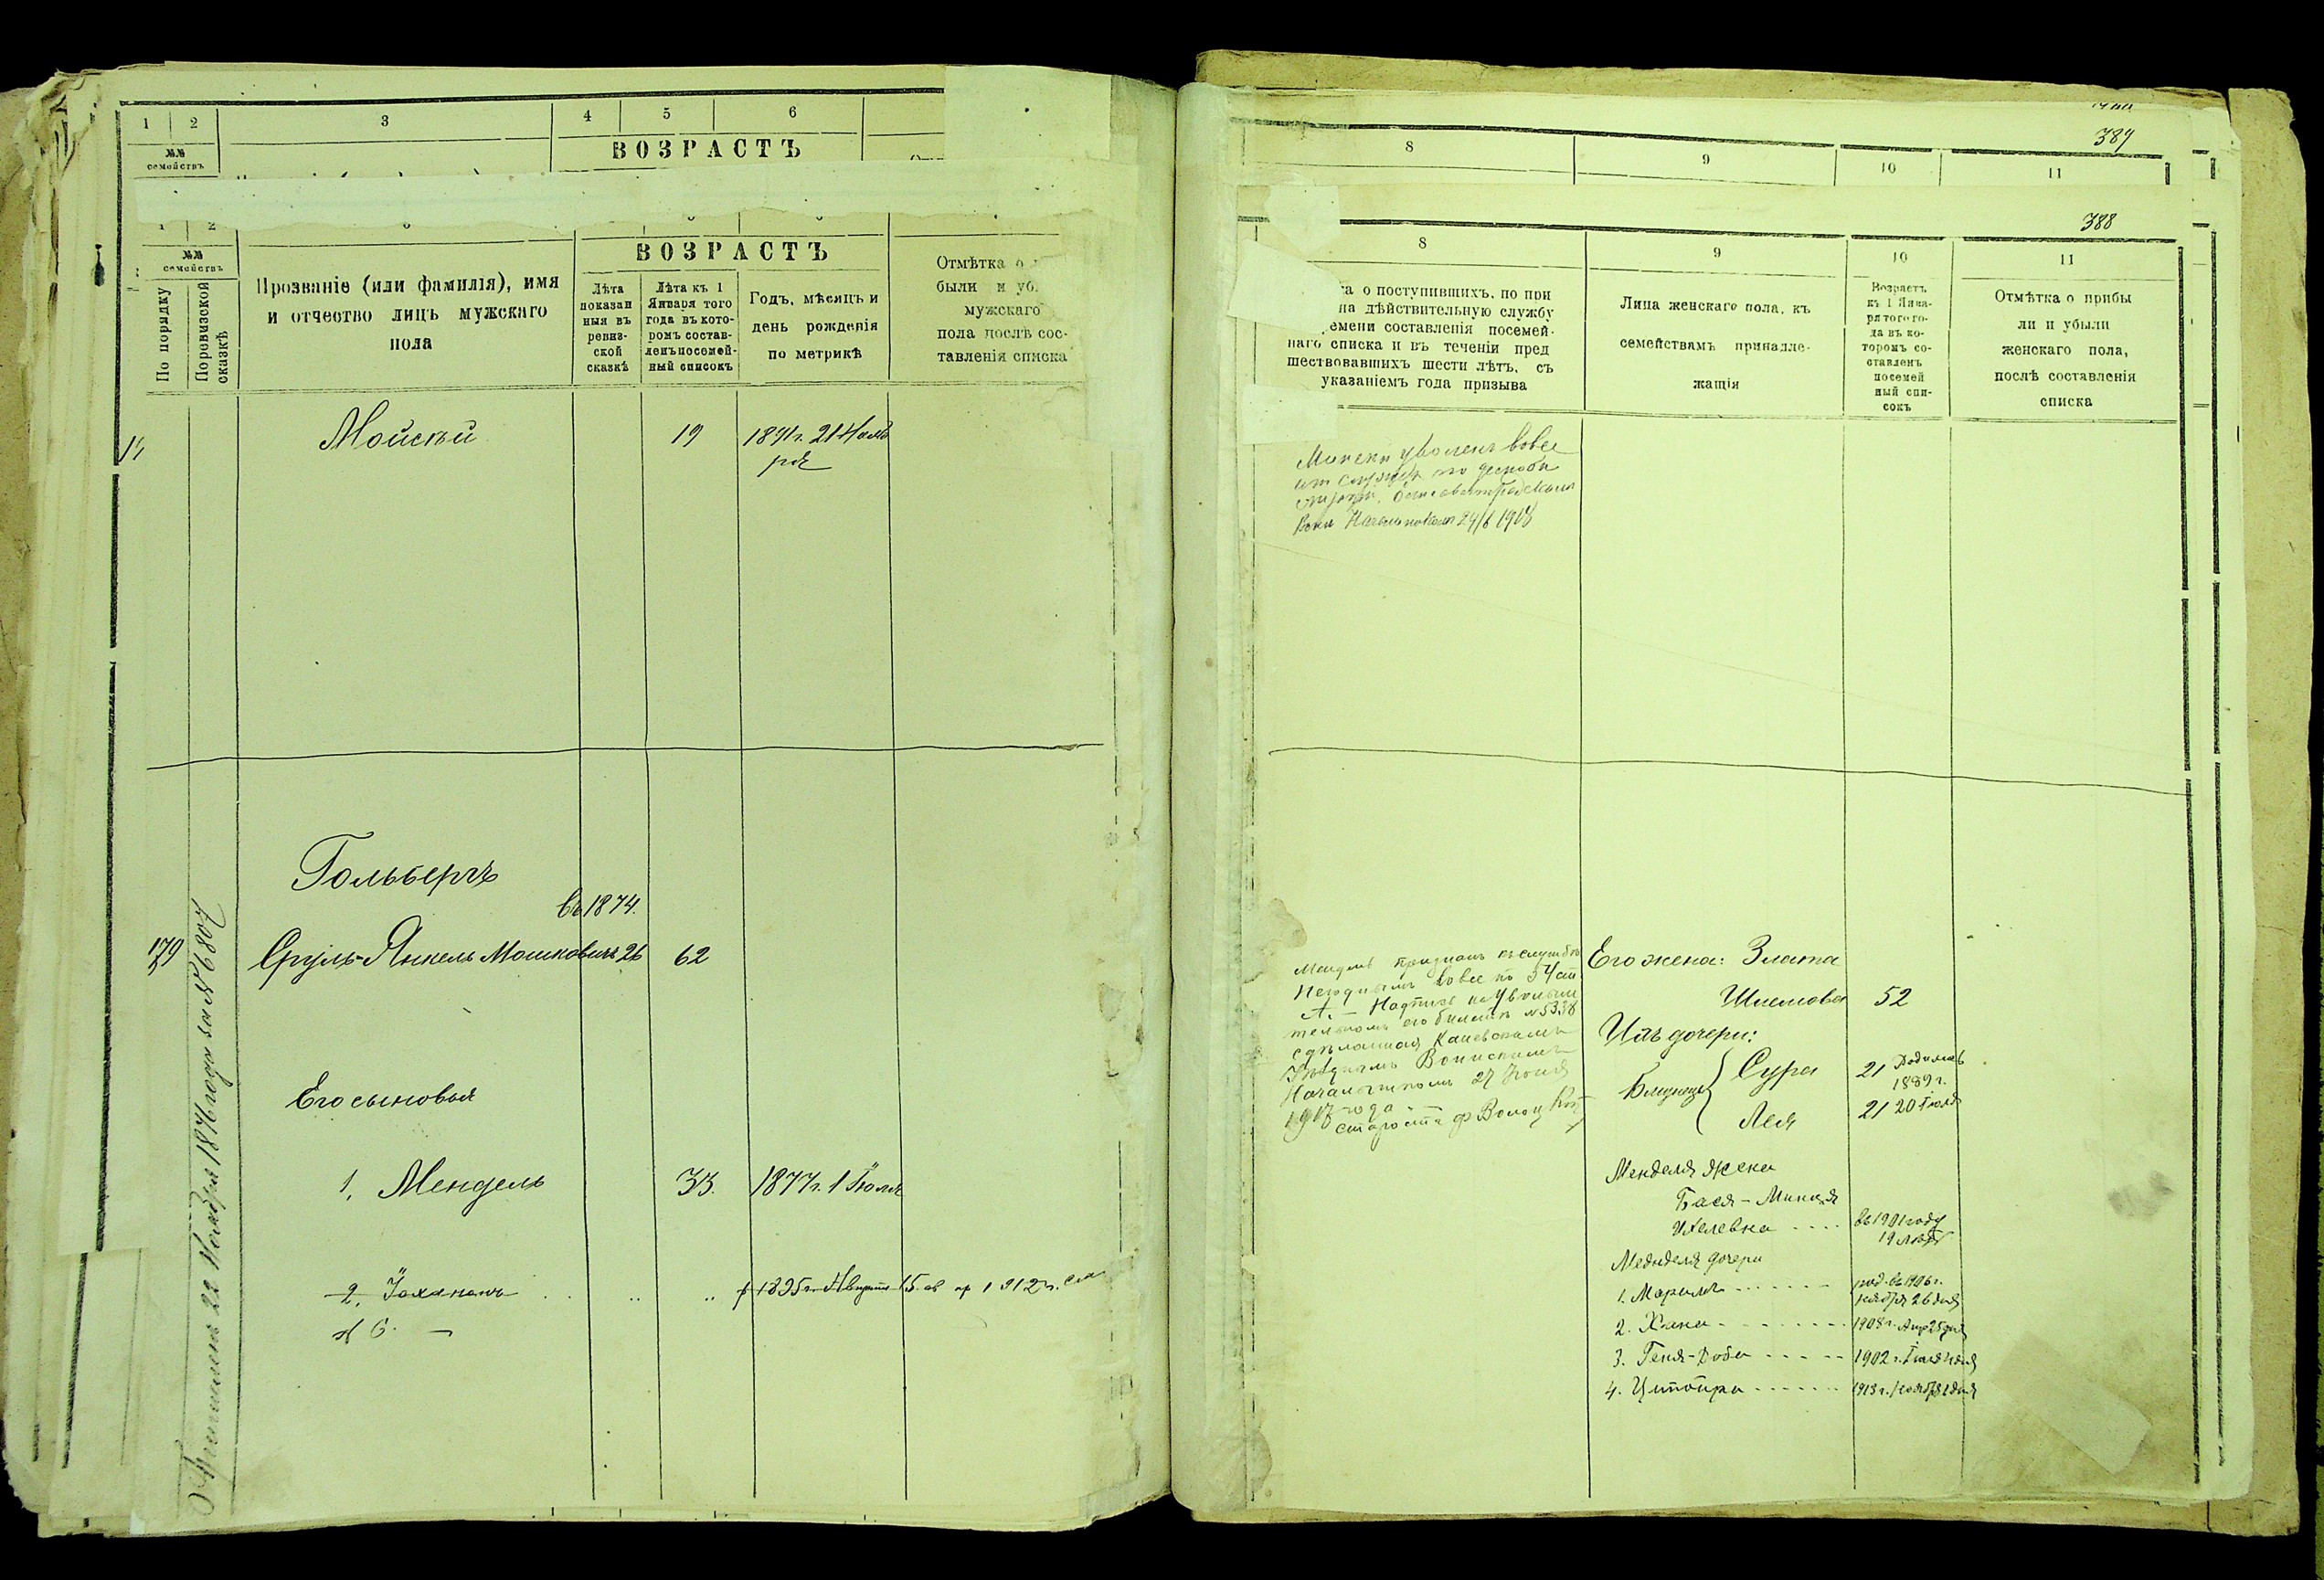 1 2 3 4 5 6
№№
семействъ
ВОЗРАСТЪ
№№
семействъ
По порядку
По ревизской сказкѣ
Прозваніе (или фамилія), имя
и отчество лицъ мужскаго
пола
ВОЗРАСТЪ
Лѣта
показан
ныя въ
ревиз-
ской
сказкѣ
Лѣта къ 1
Января того
года въ кото-
ромъ состав-
ленъ посемей-
ный списокъ
Годъ, мѣсяцъ и
день рожденія
по метрикѣ
Отмѣтка о
были и уб
мужскаго
пола послѣ сос-
тавленія списка
Мойсей 19 1891 г. 21 Нояб
ря
Гольбергъ
въ 1874.
179 Сруль-Янкель Мошковичъ 26 62
22 Ноября 1876 года за № 6807
Его сыновья
1. Мендель 33. 1877 г. 1 Іюля
2. Іохананъ 1895 г. Августа 15 1912 г.
387
8 9 10 11
388
8 9 10 11
а о поступившихъ, по при
на дѣйствительную службу
емени составленія посемей-
наго списка и въ теченіи пред
шествовавшихъ шести лѣтъ, съ
указаніемъ года призыва
Лица женскаго пола, къ
семействамъ принадле-
жащія
Возрастъ
къ 1 Янва-
ря того го-
да въ ко-
торомъ со-
ставленъ
посемей
ный спи-
сокъ
Отмѣтка о прибы
ли и убыли
женскаго пола,
послѣ составленія
списка
уволенъ вовсе
от службы по
Воин Начальником 24/6 1918
Мендель признанъ къ службѣ
Негоднымъ вовсе по 34 ст
А. – Надпись на увольни
тельномъ его билетѣ № 5338
сдѣланная Каневскимъ
Уѣзднымъ Воинскимъ
Начальникомъ 27 Іюня
1917 года
староста
Его жена: Злата
Шлемова 52
Ихъ дочери:
Близнецы Сура 21 Родилась
1889 г.
Лея 21 20 Іюля
Менделя жена
Бася-Минця
Ицелевна въ 1901 году
19 лѣтъ
Менделя дочери
1. Марьям род. въ 1906 г.
ноября 26 дня
2. Хана 1908 г. Апр 25 дня
3. Геня-Доба 1902 г.
4. Ципойра 1913 г.